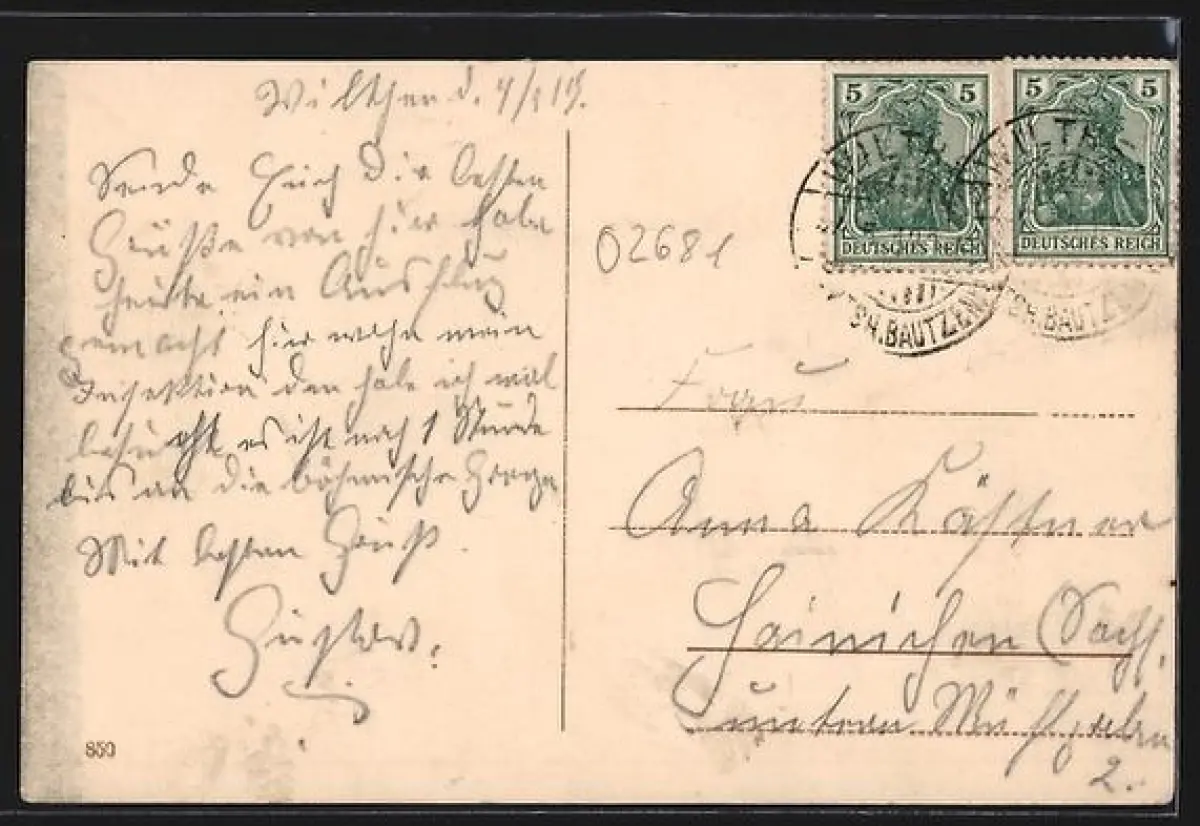 Wilthen d. 4/ 19.
Sende Euch die besten
Grüße von hier habe
heute ein Ausflug
gemacht hier wohn mein
den habe ich mal
besucht es ist noch 1 Stunde
bis an die böhmische Grenze
Mit besten Gruß.
Gustav.
850
5 5
DEUTSCHES REICH
5 5
DEUTSCHES REICH
BAUTZEN
02681
Frau
Anna Kästner
Hainichen (Sachs.
untere Mühlgraben
2.